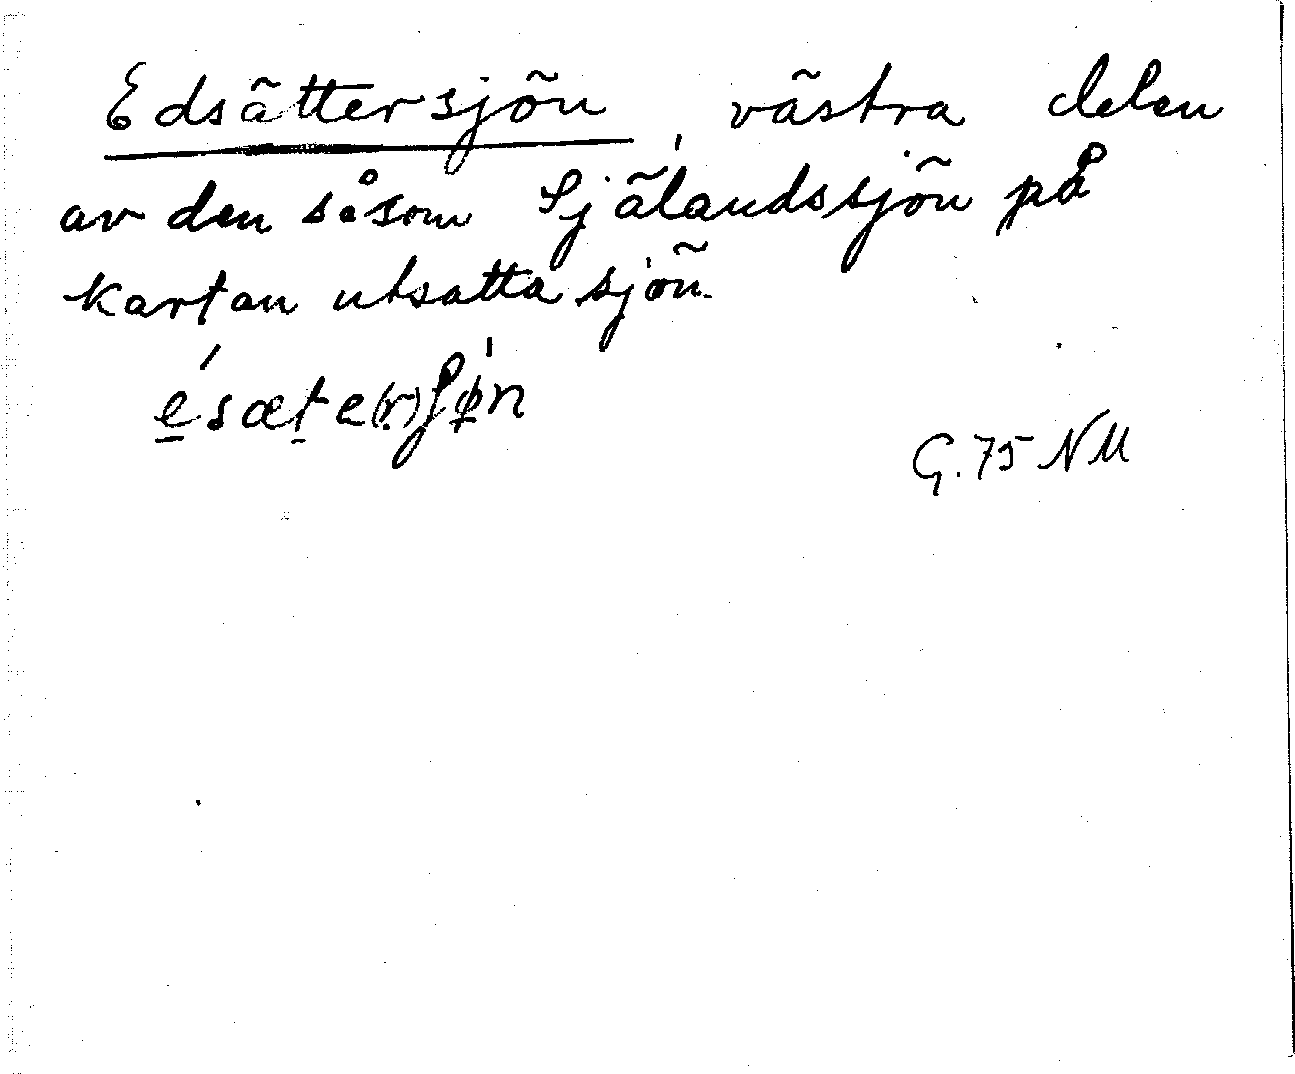 Edsättersjön, västra delen
av den såsom Själandssjön på
kartan utsatta sjön.
é̠sæt̠e(r)ʃø̍n
G. 75 NM